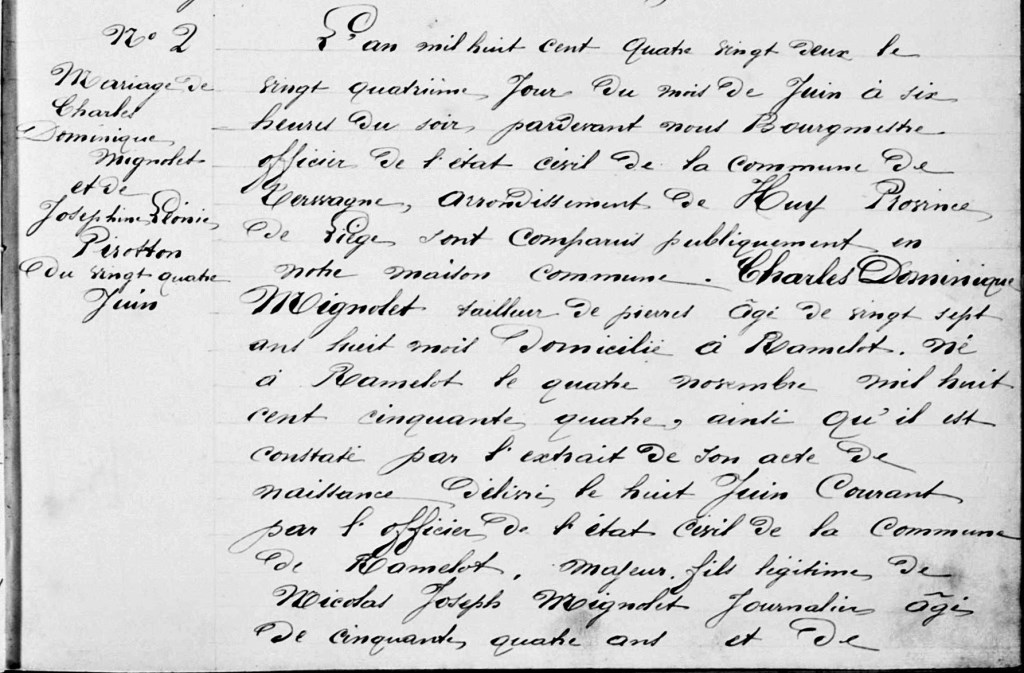 N° 2
Mariage de
Charles
Dominique
Mignolet
et de
Joséphine Léonie
Pirotton
du vingt quatre
Juin
L'an mil huit cent quatre vingt deux le
vingt quatrième Jour du mois de Juin à six
heures du soir, pardevant nous Bourgmestre
officier de l'état civil de la commune de
Terwagne, arrondissement de Huy Province
de Liège sont comparus publiquement en
notre maison commune. Charles Dominique
Mignolet tailleur de pierres âgé de vingt sept
ans huit mois Domicilié à Ramelot. Né
à Ramelot le quatre novembre mil huit
cent cinquante quatre, ainsi qu'il est
constaté par l'extrait de son acte de
naissance Délivré le huit Juin Courant
par l'officier de l'état civil de la Commune
de Ramelot, majeur, fils légitime de
Nicolas Joseph Mignolet Journalier âgé
de cinquante quatre ans et de